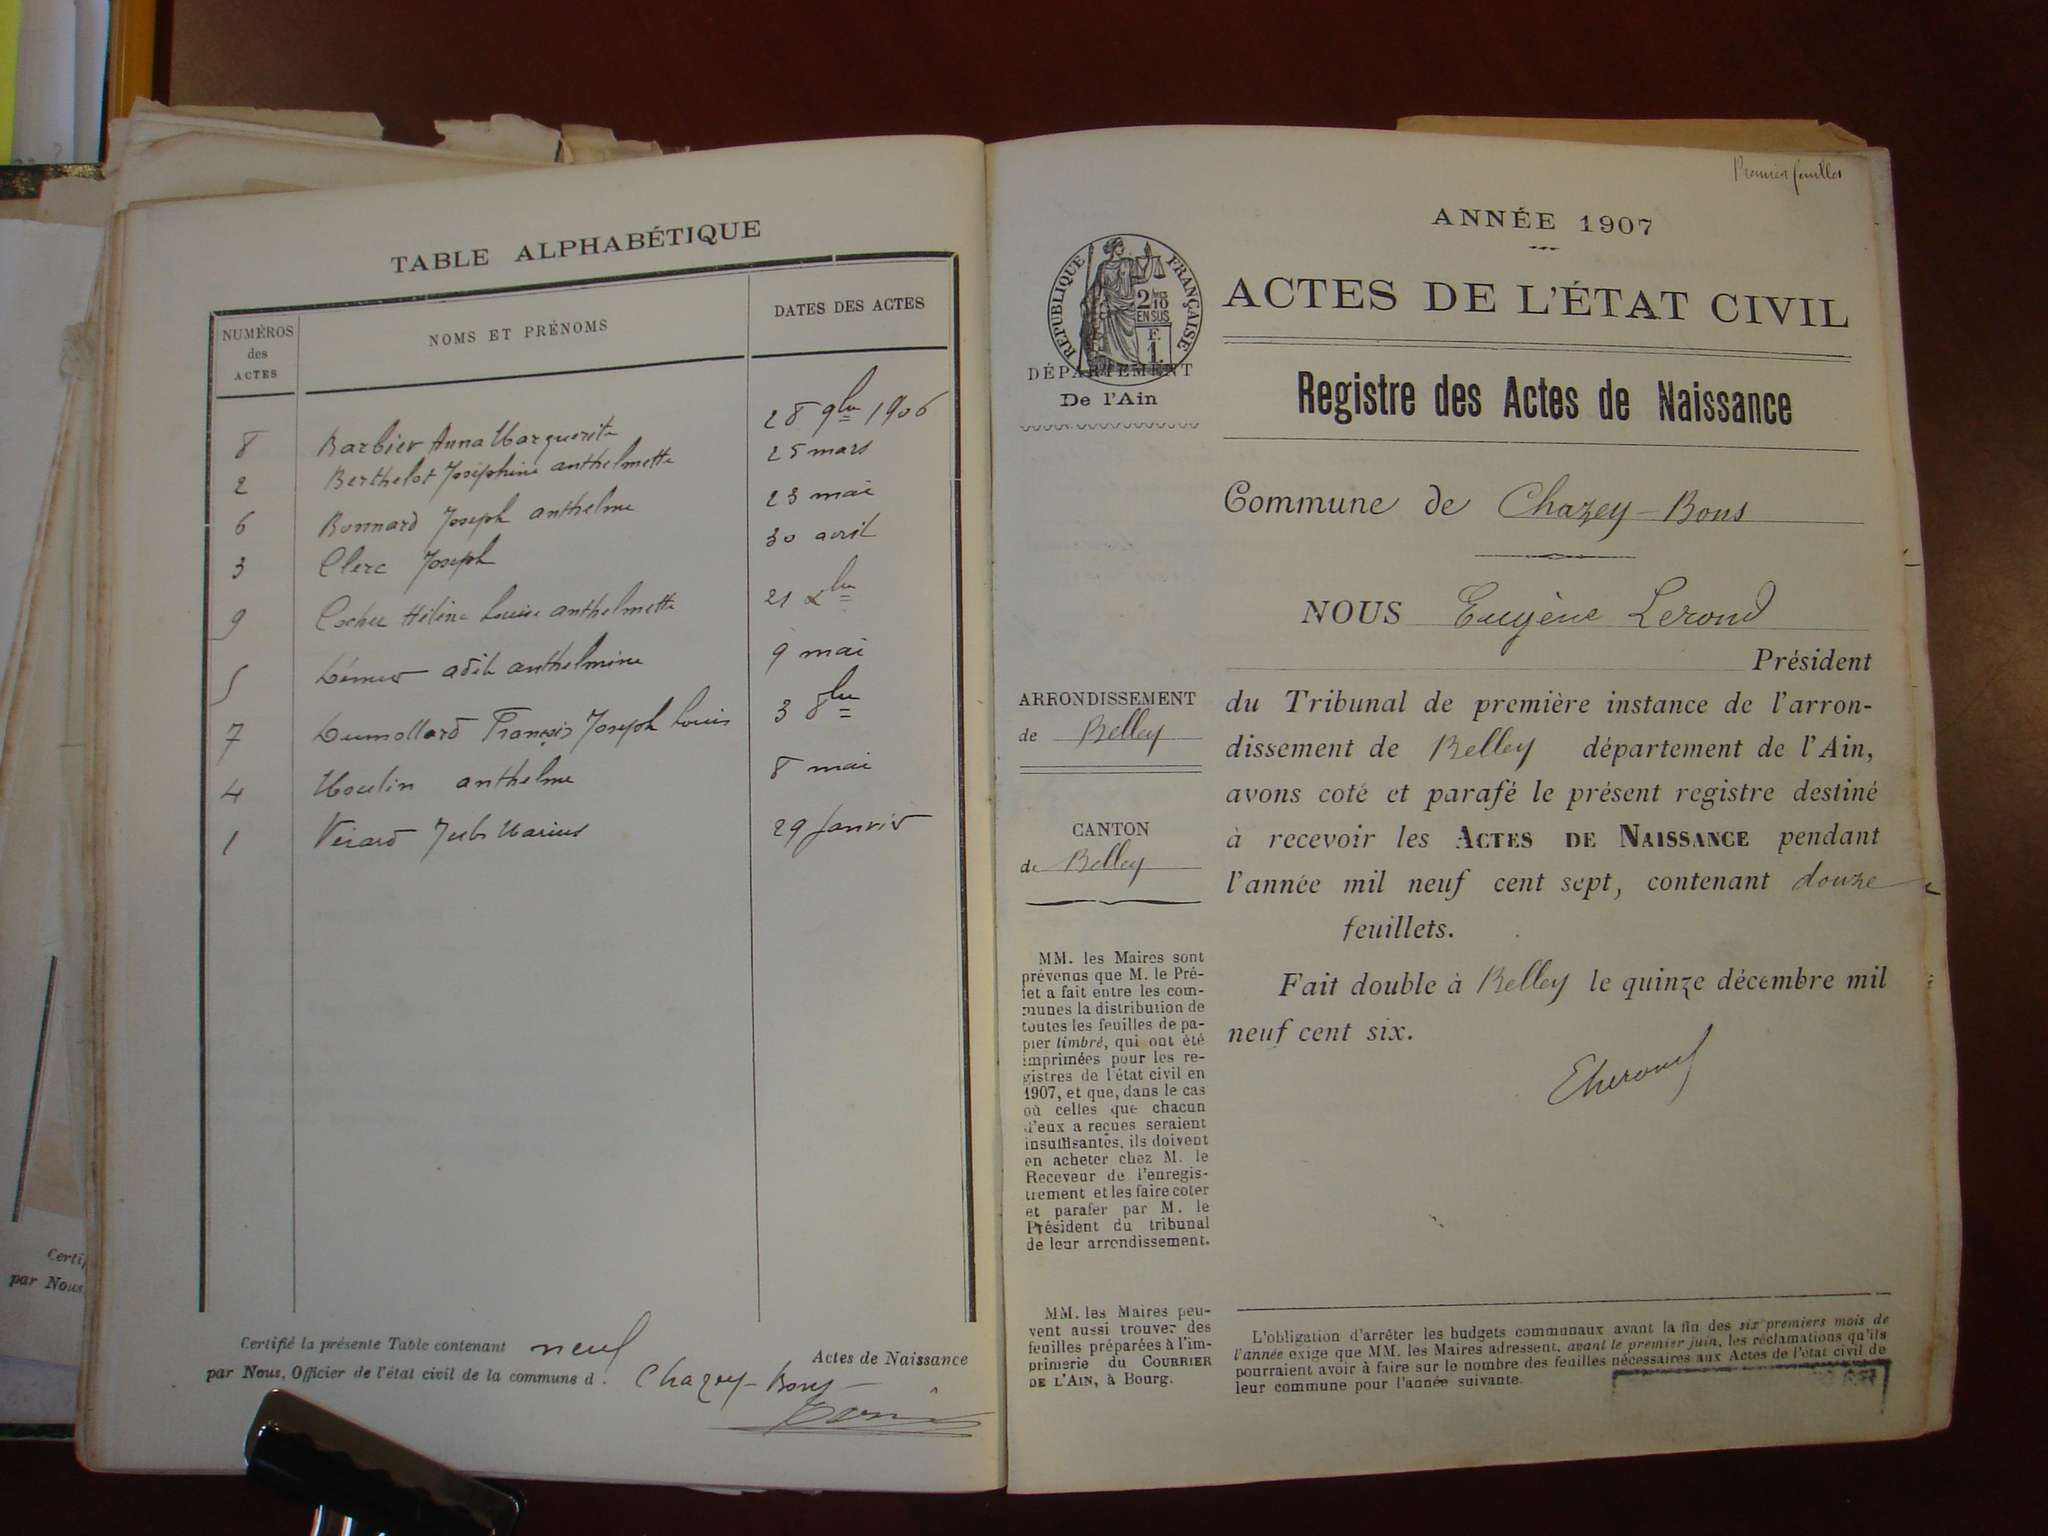 TABLE ALPHABÉTIQUE
NUMÉROS des ACTES
NOMS ET PRÉNOMS
DATES DES ACTES
8 Barbier Anna Marguerite 28 9bre 1906
2 Berthelot Joséphine anthelmette 25 mars
6 Bonnard Joseph anthelme 23 mai
3 Clerc Joseph 30 avril
9 Cochet Hélène Louise anthelmette 21 Xbre
5 anthelmine 9 mai
7 Dumollard François Joseph Louis 3 8bre
4 Moulin anthelme 8 mai
1 Marius 29 Janvier
Certifié la présente Table contenant neuf Actes de Naissance
par Nous, Officier de l'état civil de la commune d Chazey-Bons
Certif
par Nous
Premier feuillet
ANNÉE 1907
RÉPUBLIQUE FRANÇAISE
2/10
EN SUS
F.
1.
ACTES DE L'ÉTAT CIVIL
DÉPARTEMENT
De l'Ain
Registre des Actes de Naissance
Commune de Chazey-Bons
NOUS Eugène Lerond
Président
ARRONDISSEMENT
de Belley
du Tribunal de première instance de l'arron-
dissement de Belley département de l'Ain,
avons coté et parafé le présent registre destiné
à recevoir les ACTES DE NAISSANCE pendant
l'année mil neuf cent sept, contenant douze
feuillets.
CANTON
de Belley
Fait double à Belley le quinze décembre mil
neuf cent six.
ELerond
MM. les Maires sont
prévenus que M. le Pré-
fet a fait entre les com-
munes la distribution de
toutes les feuilles de pa-
pier timbré, qui ont été
imprimées pour les re-
gistres de l'état civil en
1907, et que, dans le cas
où celles que chacun
d'eux a reçues seraient
insuffisantes, ils doivent
en acheter chez M. le
Receveur de l'enregis-
trement et les faire coter
et parafer par M. le
Président du tribunal
de leur arrondissement.
MM. les Maires peu-
vent aussi trouver des
feuilles préparées à l'im-
primerie du COURRIER
DE L'AIN, à Bourg.
L'obligation d'arrêter les budgets communaux avant la fin des six premiers mois de
l'année exige que MM. les Maires adressent, avant le premier juin, les réclamations qu'ils
pourraient avoir à faire sur le nombre des feuilles nécessaires aux Actes de l'état civil de
leur commune pour l'année suivante.